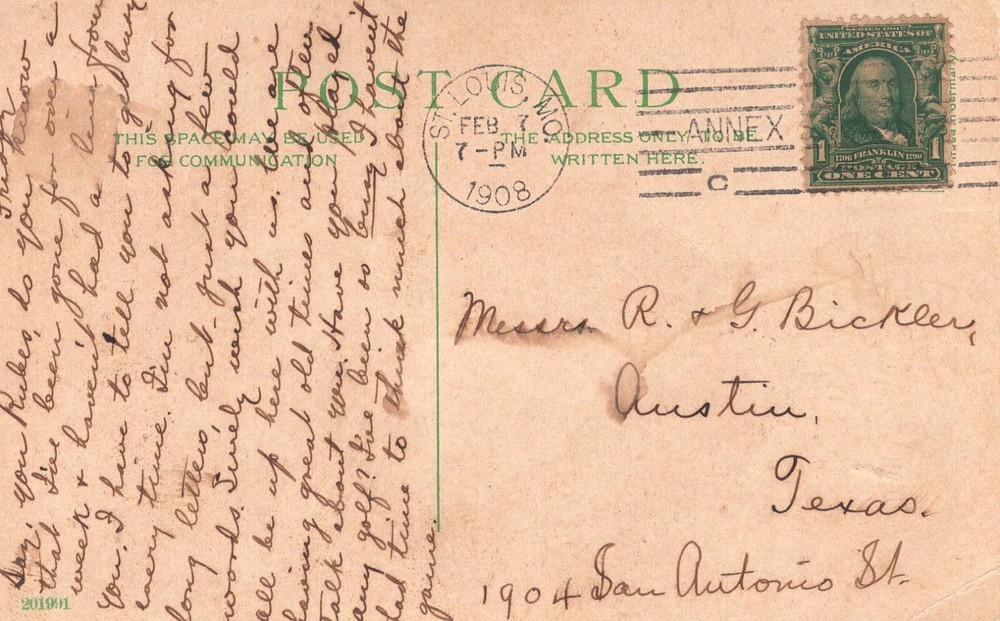 POST CARD
THIS SPACE MAY BE USED
FOR COMMUNICATION
THE ADDRESS ONLY TO BE
WRITTEN HERE.
ST. LOUIS, MO.
FEB 7
7-PM
1908
ANNEX
C
SERIES 1902
UNITED STATES OF
AMERICA
1 1706 FRANKLIN 1790 1
POSTAGE
ONE CENT
in Germany
Say, you Rubes, do you know
that I've been gone for over a
week & haven't had a line from
you. I have to tell you to get busy
every time. I'm not asking for
long letters, but just a few
words. Surely wish you could
all be up here with us. We are
having great old times and often
talk about you. Have you played
any golf? I've been so busy I haven't
had time to think much about the
game.
Messrs. R. & G. Bickler,
Austin,
Texas.
1904 San Antonio St.
201991